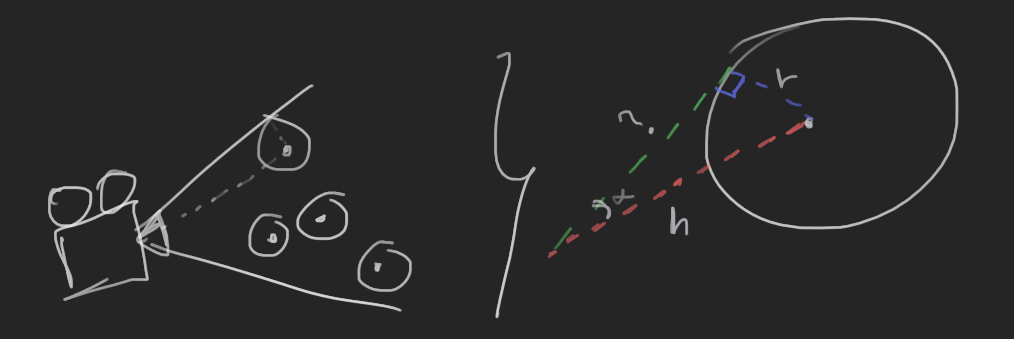 r
?
α
h